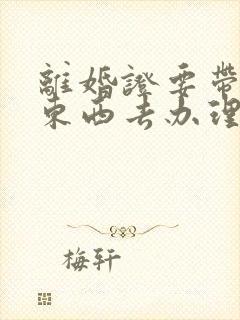 離婚證要帶
東西去办理
梅轩